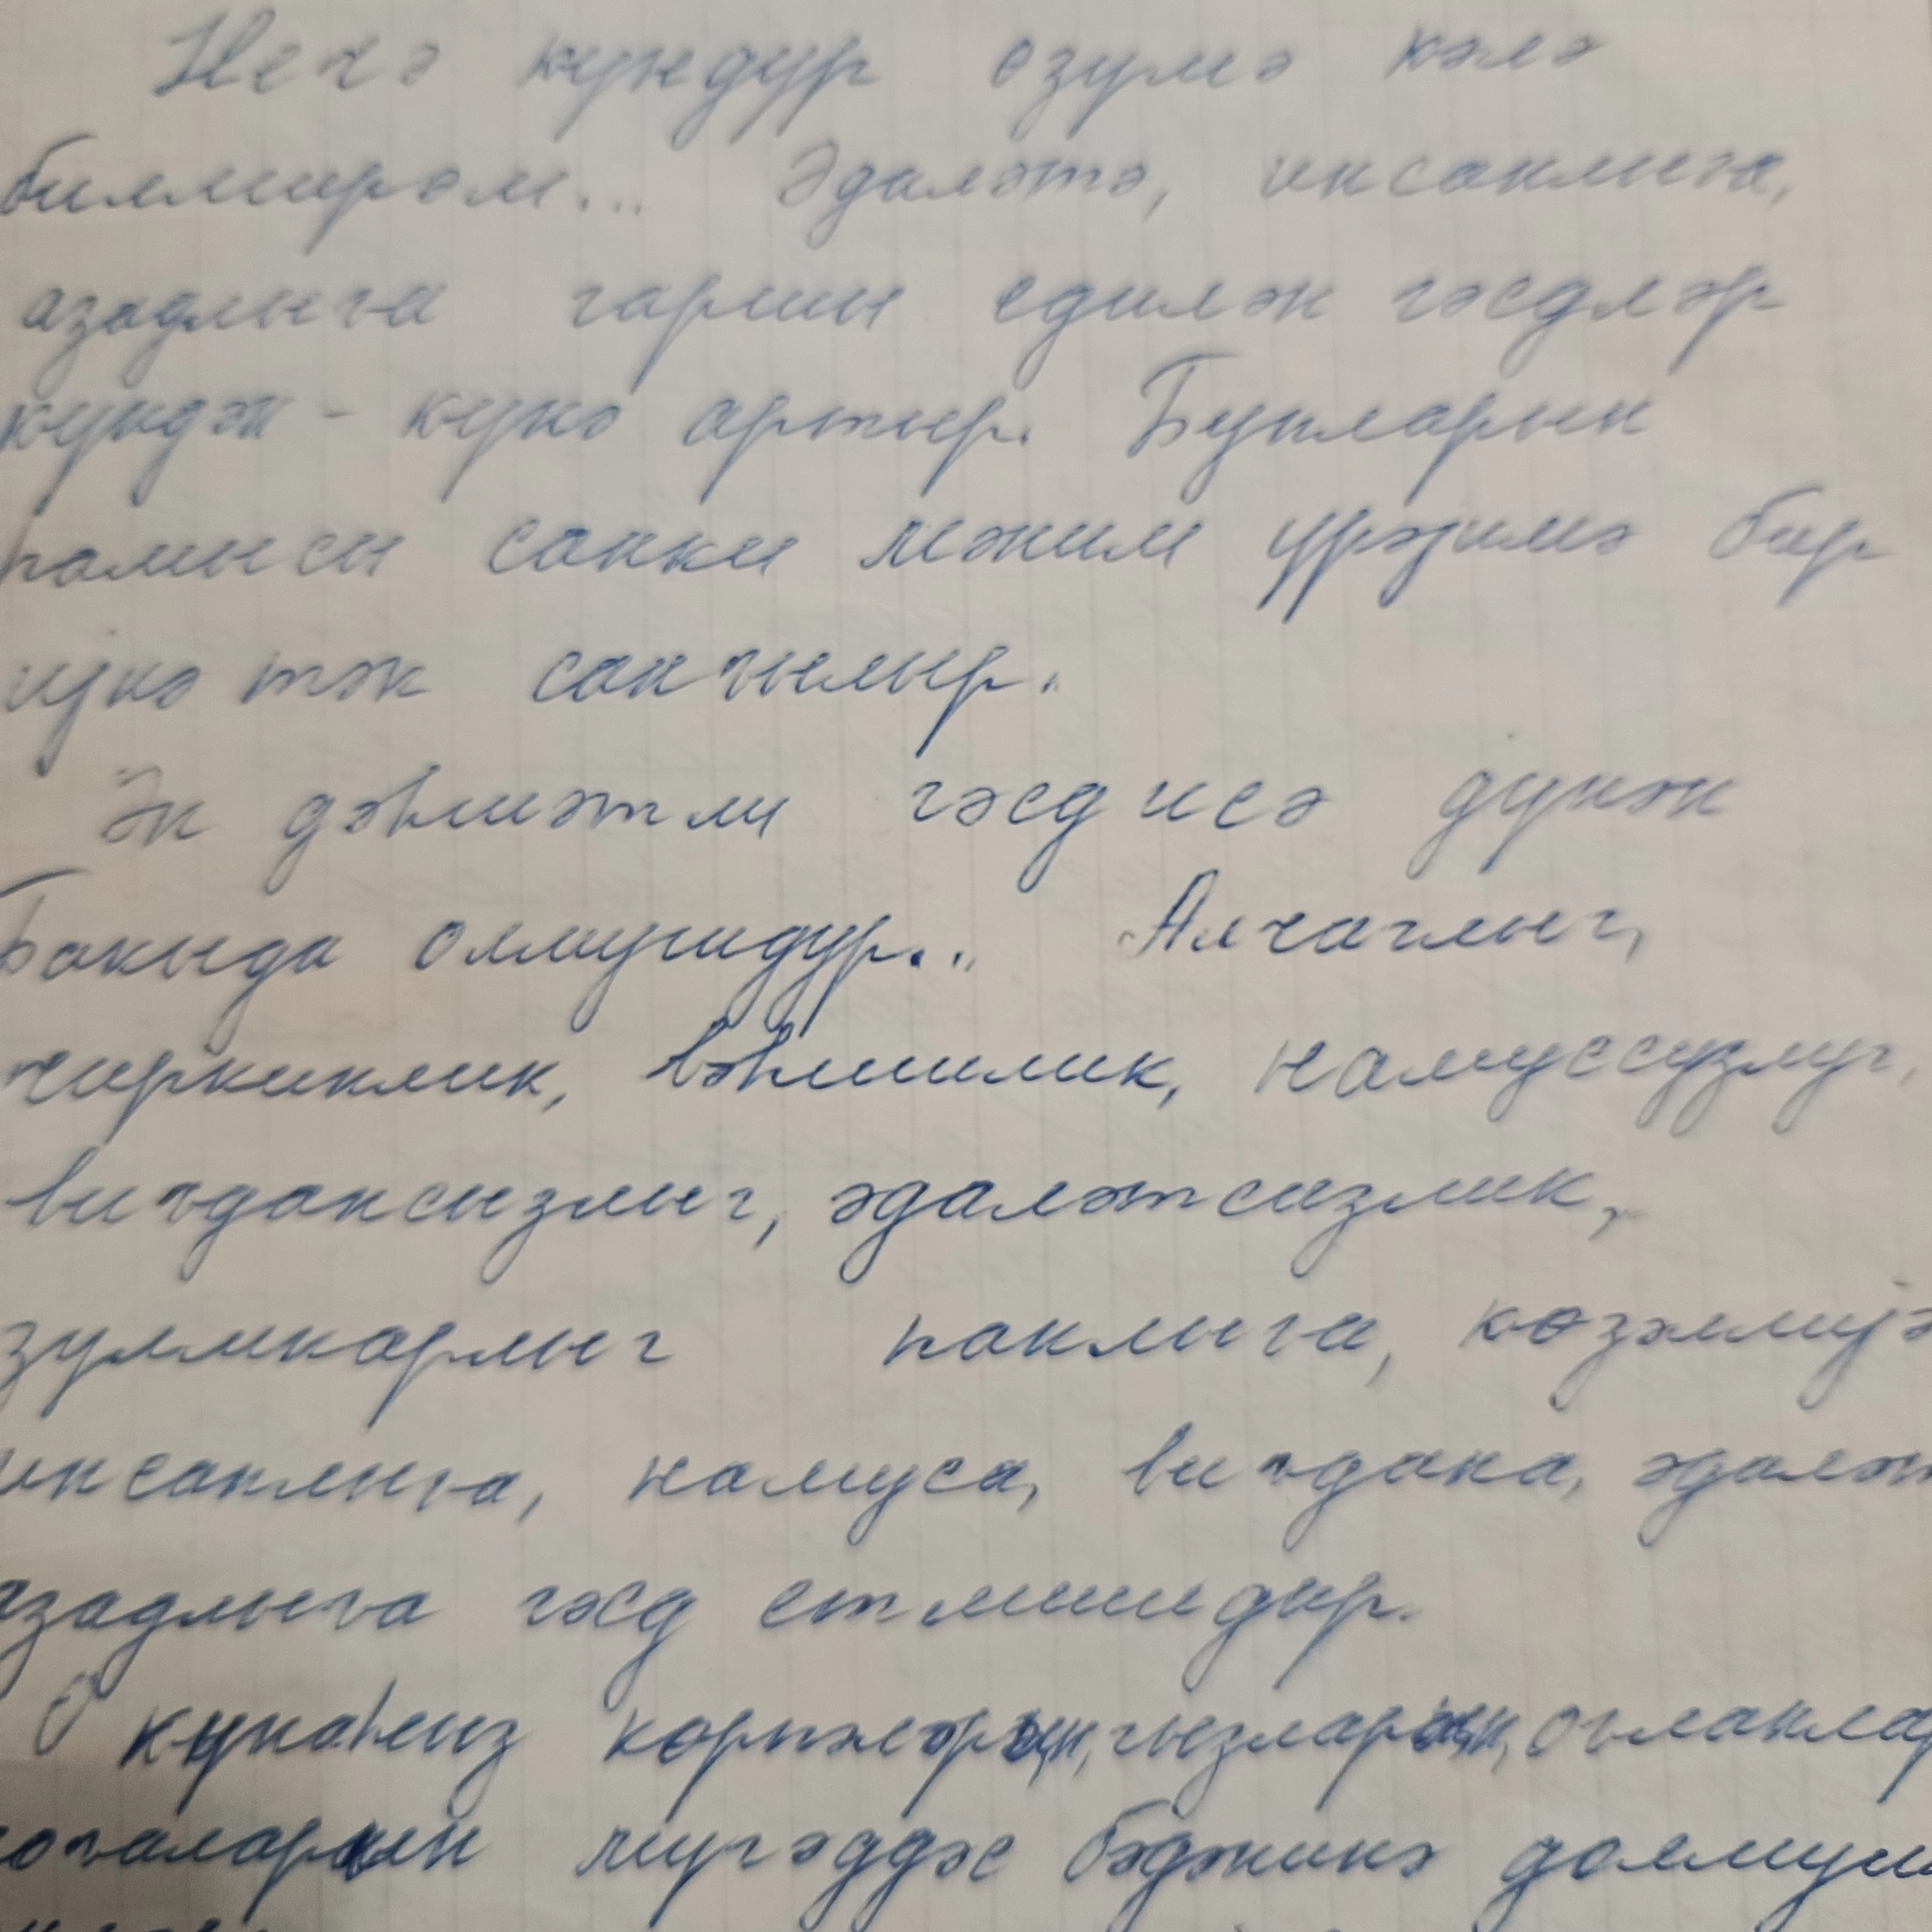 Нечә күндүр өзүмә кәлә
билмирәм... Әдаләтә, инсанлыға,
азадлыға гаршы едилән гәсдләр
күндән-күнә артыр. Бунларын
һамысы санки мәним үрәјимә бир
ијнә тәк санҹылыр.
Ән дәһшәтли гәсд исә дүнән
Бакыда олмушдур... Алчаглыг,
чиркинлик, вәһшилик, намуссузлуг,
виҹдансызлыг, әдаләтсизлик,
зүлмкарлыг паклыға, көзәллијә
инсанлыға, намуса, виҹдана, әдаләт
азадлыға гәсд етмишдир.
О күнаһсыз көрпәләрин, гызларын, оғланлар
гоҹаларын мүгәддәс бәдәнинә долмуш